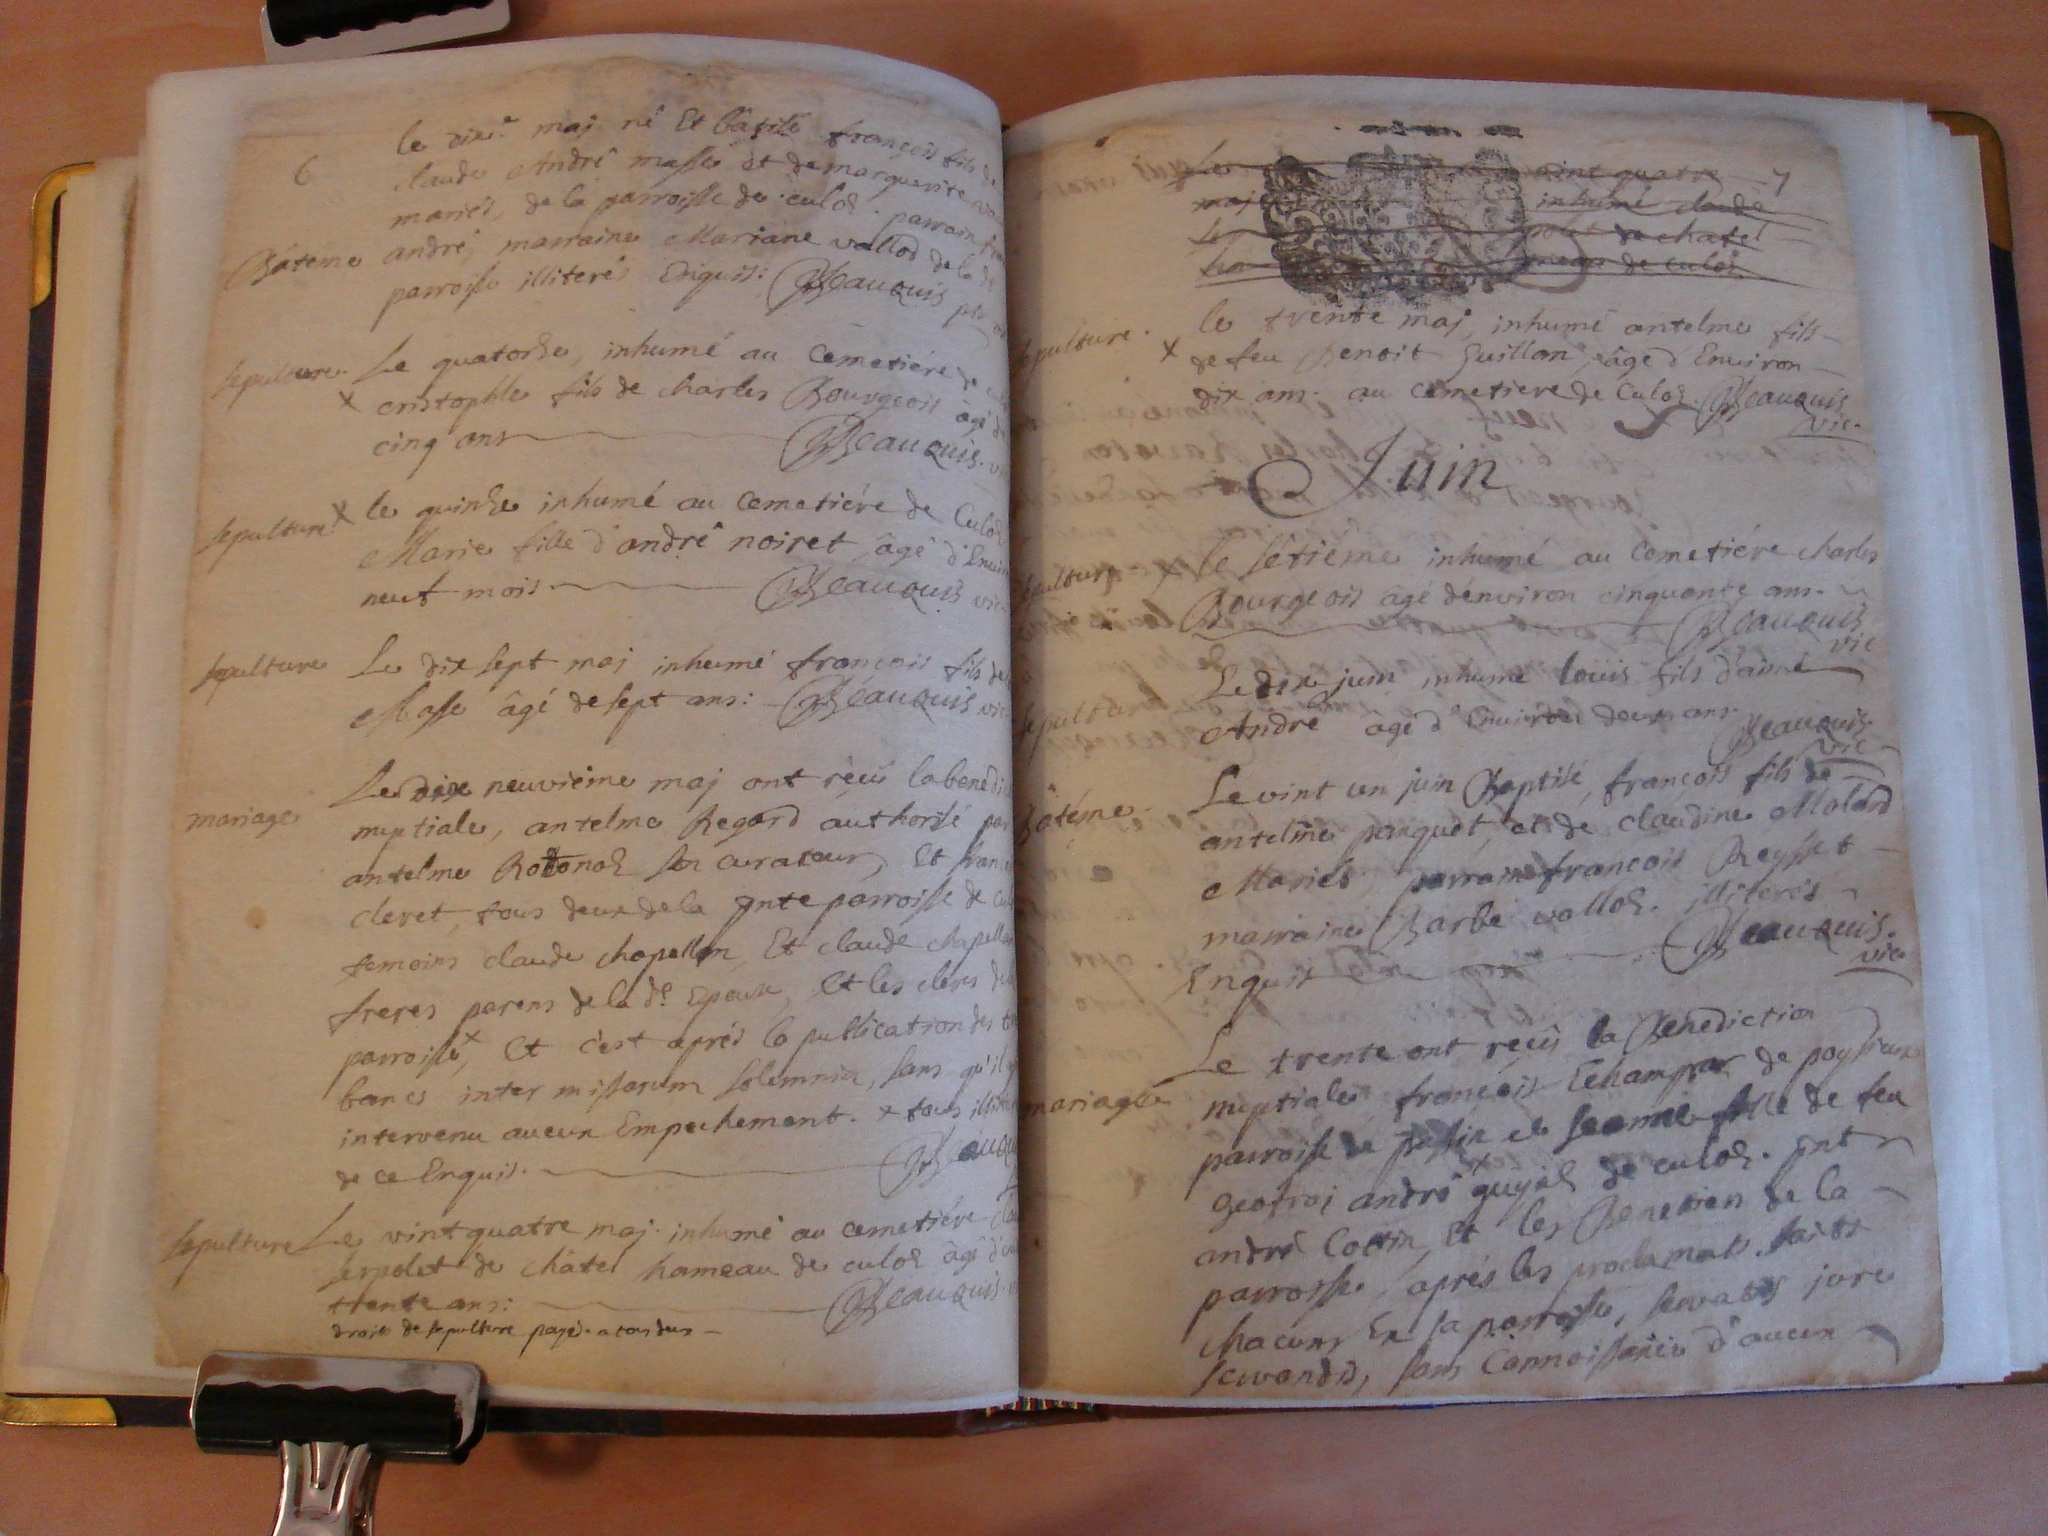 6
le dix.e maj né Et bâtisé françois fils de
claude André masse et de marguerite
mariés, de la parroisse de culoz. parrain
Bâteme andré, marraine Mariane vallod de la
parroisse illiterés Enquis: BEAUQUIS
sepulture. Le quatorze, inhumé au Cemetiére de
x cristophle fils de charles Bourgeois âgé de
cinq ans BEAUQUIS.
sepulture x le quinze inhumé au Cemetiére de Culoz
Marie fille d'andré noiret âgé d'Envi
neuf mois BEAUQUIS vic
sepulture Le dix sept maj inhumé françois fils de
Masse âgé de sept ans: BEAUQUIS vic
Le dix neuvieime maj ont rêcû la benedi
mariage nuptiale, antelme Regard authorisé par
antelme son curateur, Et
cleret, tous deux de la pnte parroisse de
temoins claude chapellon, Et claude
freres parens de la d.e Epouse, Et les clers
parroisse,x Et c'est aprés la publication des
bancs inter missarum solemnia, sans qu'il
intervenu aucun Empechement. x tous
de ce Enquis. BEAUQU
sepulture Le vint quatre maj inhumé au cemetiére
serpolet de châtel hameau de culoz âgé
trente ans: BEAUQUIS
droits de sepulture payé.
Le vint quatre 7
maj inhumé claude
de chatel
hameau de culoz
sepulture. le trente maj, inhumé antelme fils
x de feu Benoit Guillon, âgé d'Environ
dix ans. au cemetiere de Culoz. BEAUQUIS
vic.
Juin
sepulture x le sêtiéme inhumé au Cemetiére charles
Bourgeois âgé d'environ cinquante ans.
BEAUQUIS
vic
Le dix juin inhumé loüis fils d'aimé
sepulture André âgé d'Environ deux ans.
BEAUQUIS.
vic
Le vint un juin Baptisé, françois fils de
Bâtéme. antelme et de claudine Molard
Mariés, parrain françois Reysset
marraine Barbe vallod. illiterés
Enquis BEAUQUIS.
vic.
Le trente ont reçû la Benediction
mariage nuptiale françois de
parroisse de et jeanne fille de feu
Geofroi andré de culoz. pnt
andré Cottin, Et les de la
parroisse, aprés les proclamats faits
chacuns En sa parroisse, servatis jure
servandis, sans Connoissance d'aucun